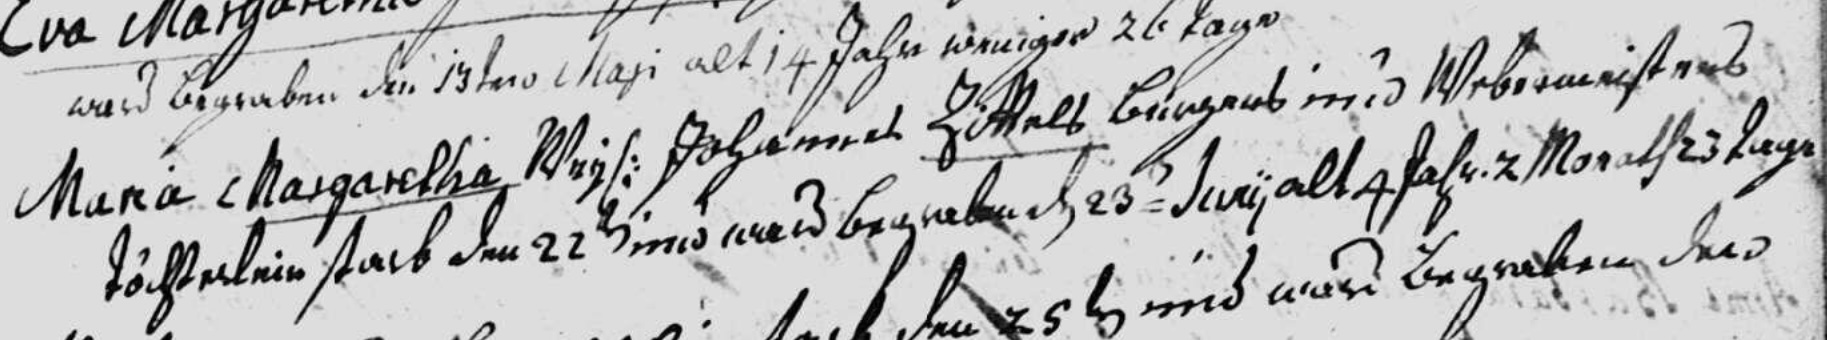 Eva Margaretha
ward begraben den 13ten Maji alt 14 Jahr weniger 26 tage
Maria Margaretha Johannes Zittels burgers und Webermeisters
töchterlein starb den 22t und ward begraben d 23t Junij alt 4 Jahr. 2 Monath 23 tage
starb den 25t und ward begraben den